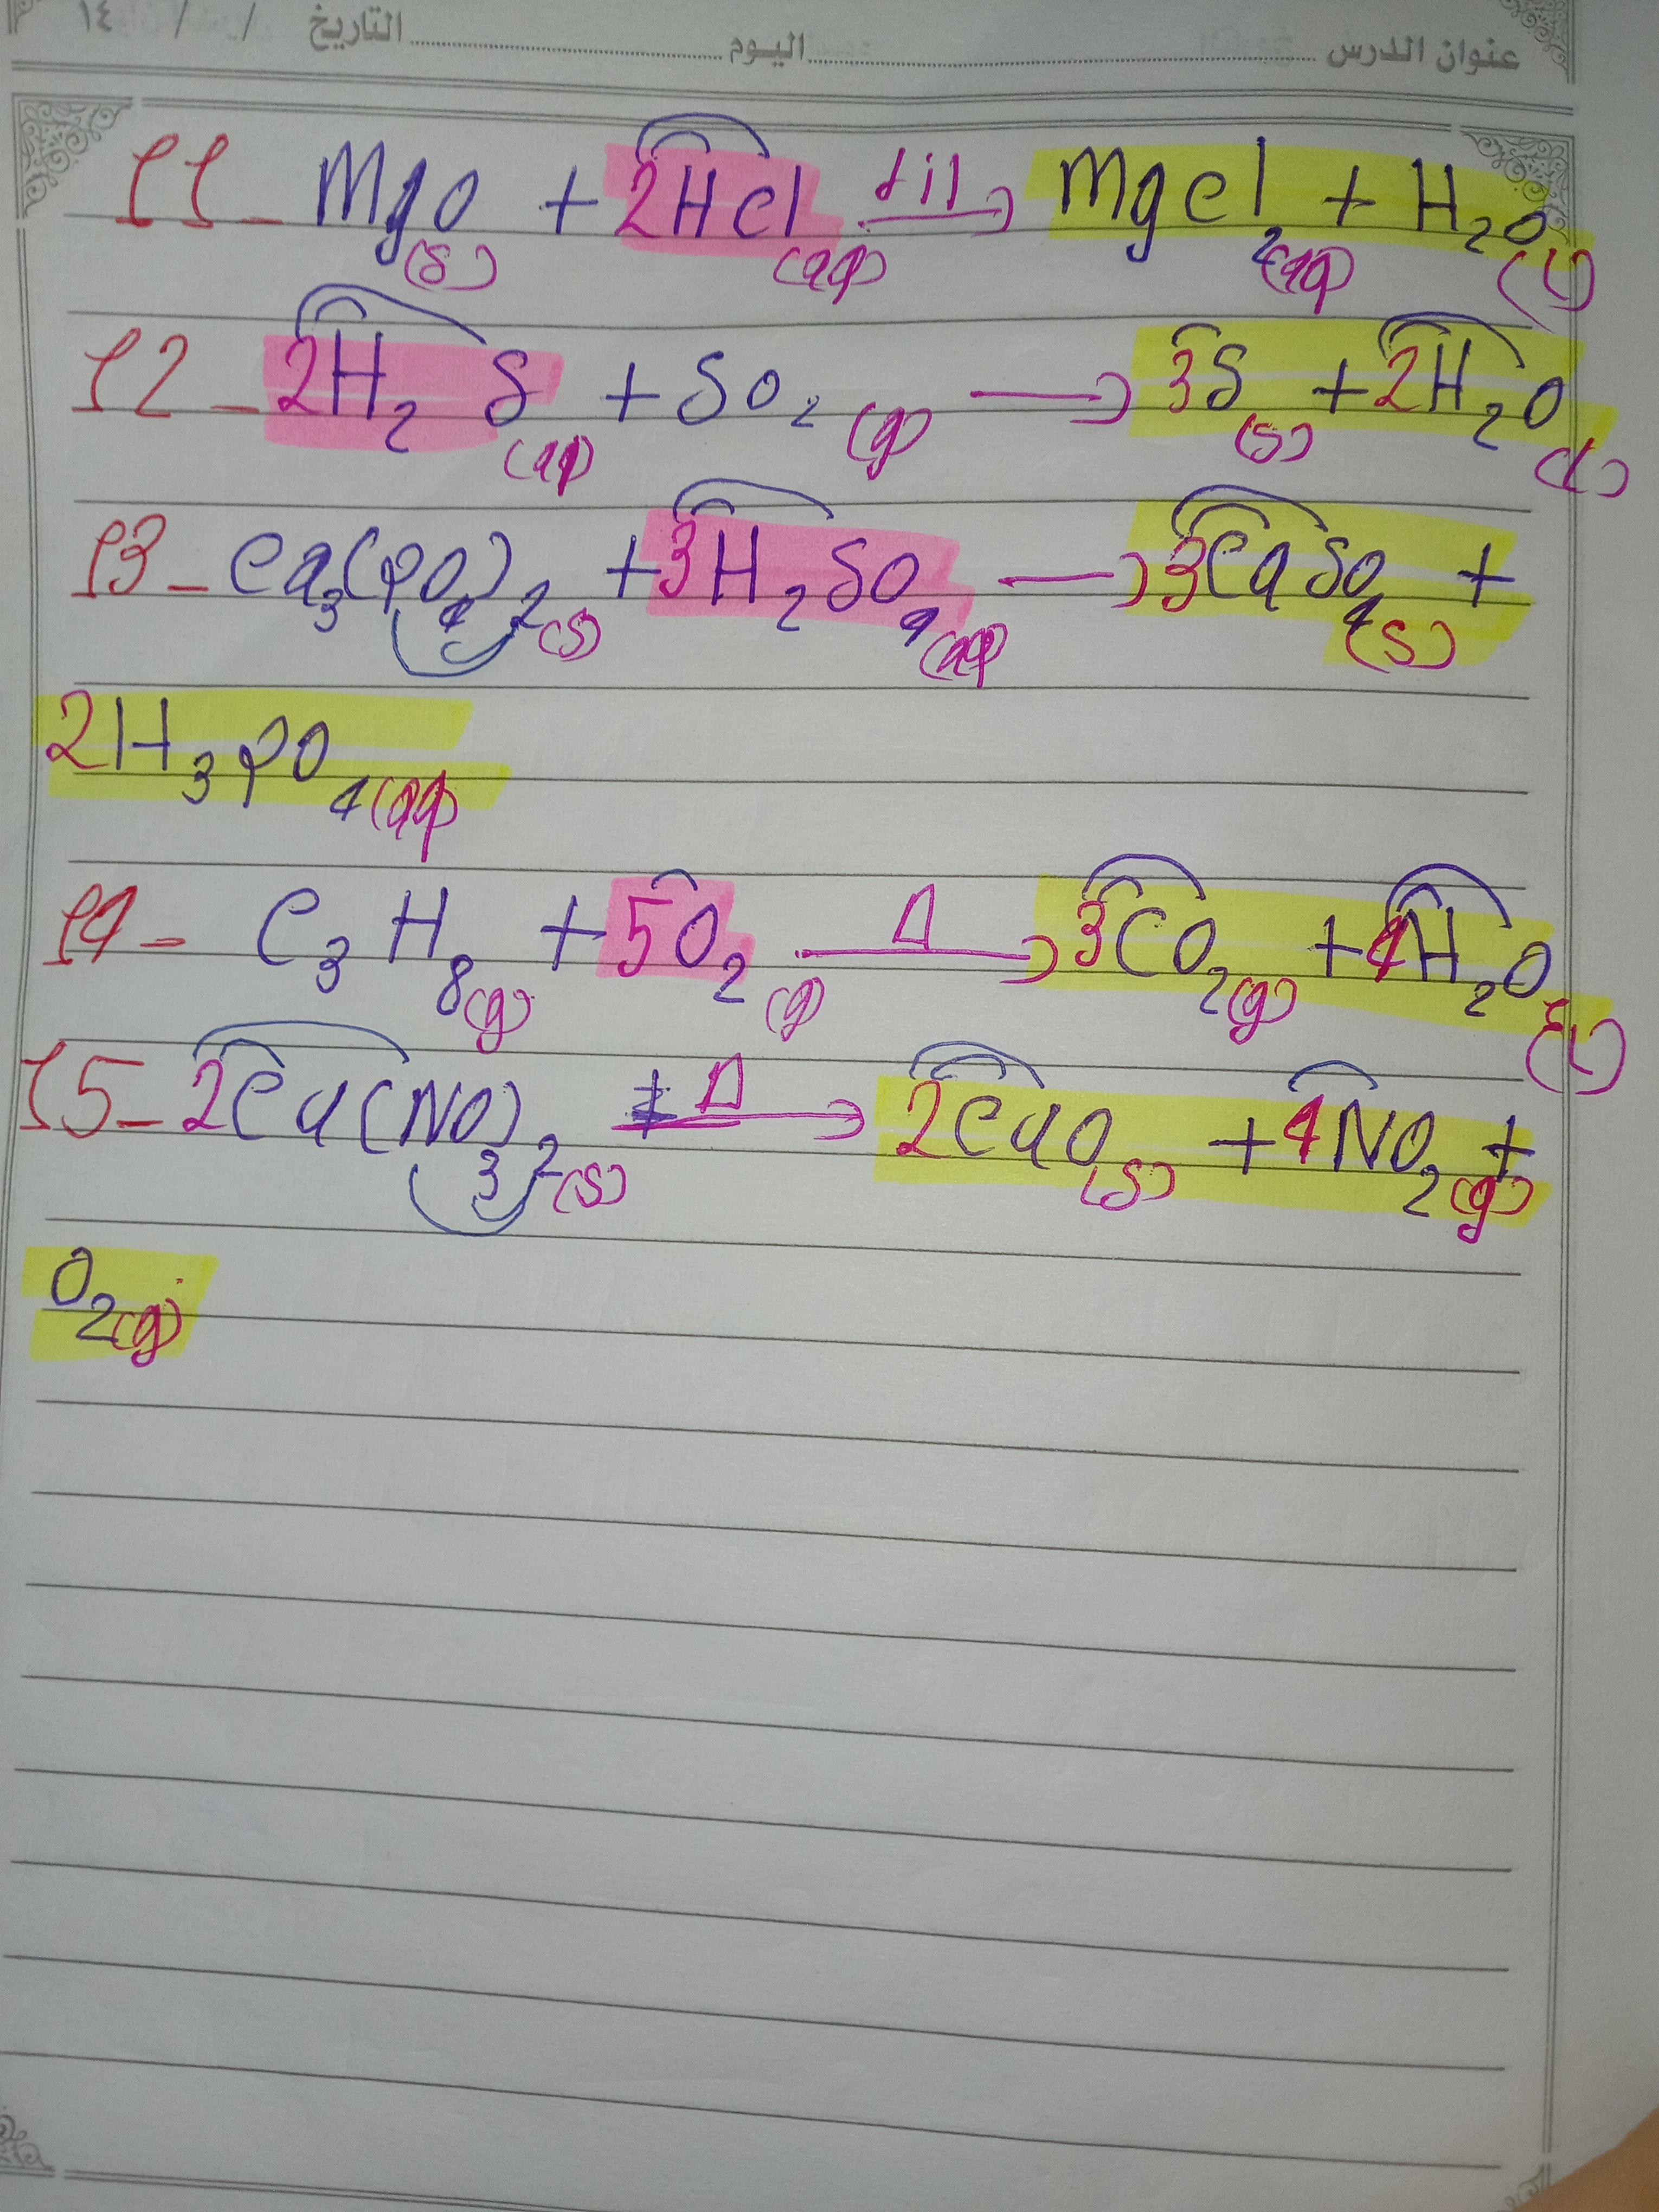 عنوان الدرس اليوم التاريخ / / ١٤
11- MgO(s) + 2HCl(aq) dil→ MgCl₂(aq) + H₂O(l)
12- 2H₂S(aq) + SO₂(g) → 3S(s) + 2H₂O(l)
13- Ca₃(PO₄)₂(s) + 3H₂SO₄(aq) → 3CaSO₄(s) +
2H₃PO₄(aq)
14- C₃H₈(g) + 5O₂(g) Δ→ 3CO₂(g) + 4H₂O(l)
15- 2Ca(NO₃)₂(s) Δ→ 2CaO(s) + 4NO₂(g) +
O₂(g)